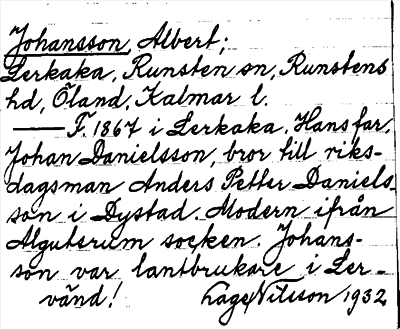 Johansson, Albert;
Lerkaka, Runsten sn, Runstens
hd, Öland, Kalmar l.
— F. 1867 i Lerkaka. Hans far,
Johan Danielsson, bror till riks-
dagsman Anders Petter Daniels-
son i Dystad. Modern ifrån
Algutsrum socken. Johans-
son var lantbrukare i Ler-
vänd! Lage Nilsson 1932